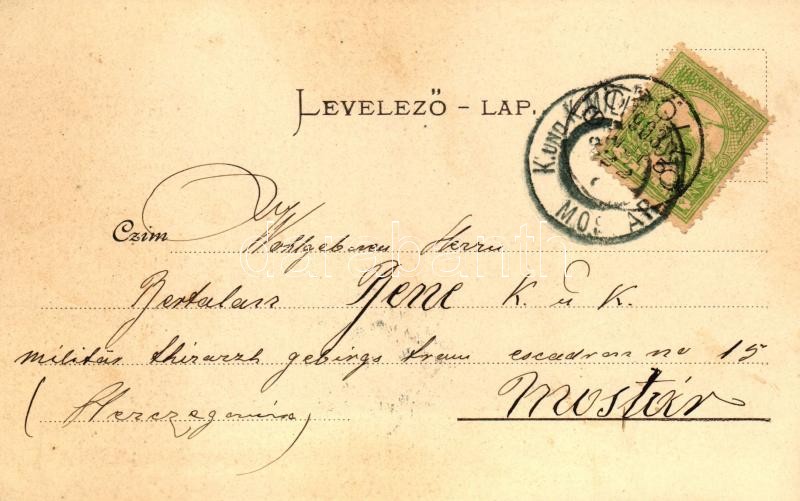 LEVELEZŐ - LAP.
K. UND K. MIL
MOS AR
MAGYAR KIR. POSTA
Czim Wohlgeboren Herrn
Bertalan Bene K. u. K.
militär thierarzt gebirgs train escadron no 15
Mostár
(Herczegovina)
darabanth